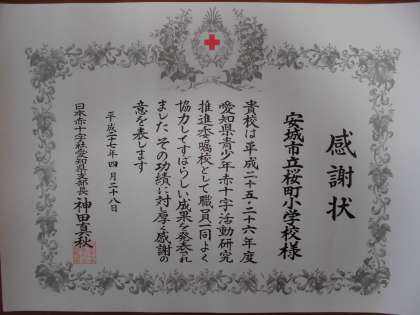 感謝状
安城市立桜町小学校様
貴校は平成二十五・二十六年度
愛知県青少年赤十字活動研究
推進委嘱校として職員一同よく
協力してすばらしい成果を発表され
ました その功績に対し厚く感謝の
意を表します
平成二十七年四月二十八日
日本赤十字社愛知県支部長 神田真秋